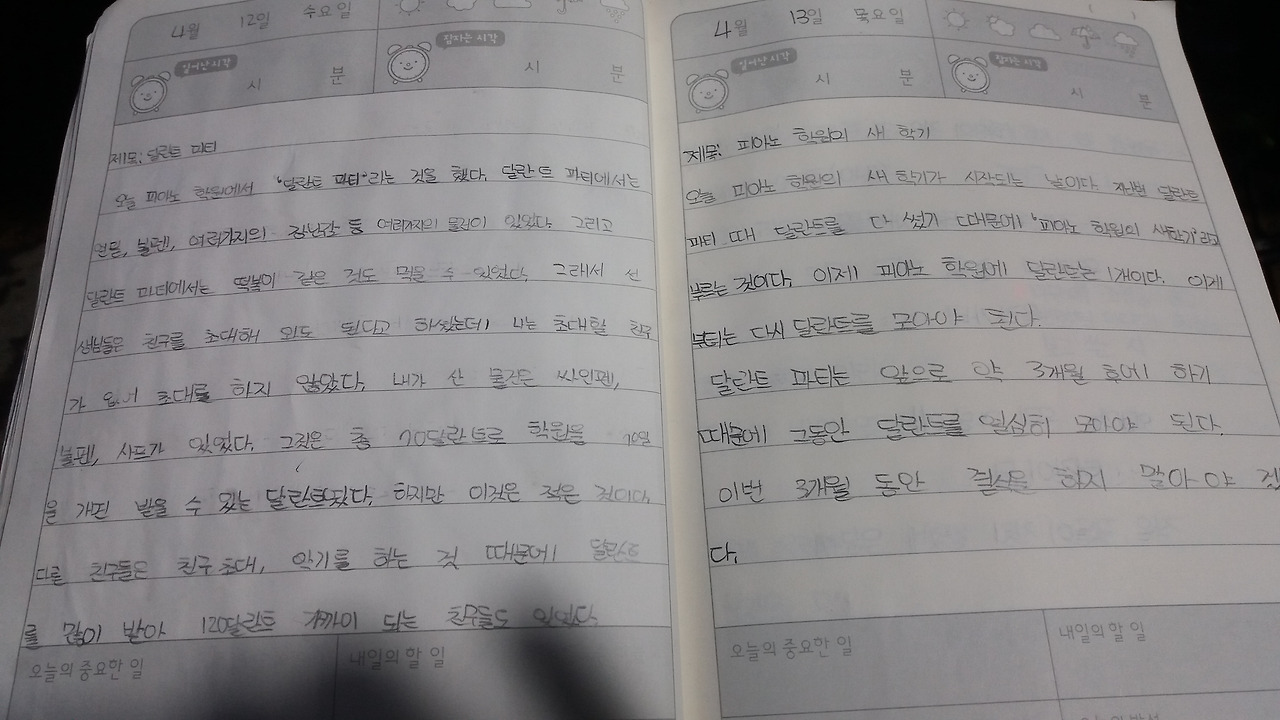 4월 12일 수요일
일어난시각 시 분 잠자는시각 시 분
제목: 달란트 파티
오늘 피아노 학원에서 "달란트 파티"라는 것을 했다. 달란트 파티에서는
연필, 볼펜, 여러가지의 장난감 등 여러가지의 물건이 있었다. 그리고
달란트 파티에서는 떡볶이 같은 것도 먹을 수 있었다. 그래서 선
생님들은 친구를 초대해 와도 된다고 하셨는데 나는 초대할 친구
가 없어 초대를 하지 않았다. 내가 산 물건은 싸인펜,
볼펜, 샤프가 있었다. 그것은 총 70달란트로 학원을 70일
을 가면 받을 수 있는 달란트였다. 하지만 이것은 적은 것이다.
다른 친구들은 친구 초대, 악기를 하는 것 때문에 달란트
를 많이 받아 120달란트 가까이 되는 친구들도 있었다.
오늘의 중요한 일 내일의 할 일
4월 13일 목요일
일어난시각 시 분 잠자는시각 시 분
제목: 피아노 학원의 새 학기
오늘 피아노 학원의 새 학기가 시작되는 날이다. 저번 달란트
파티 때 달란트를 다 썼기 때문에 "피아노 학원의 새학기"라고
부르는 것이다. 이제 피아노 학원에 달란트는 1개이다. 이제
부터는 다시 달란트를 모아야 된다.
달란트 파티는 앞으로 약 3개월 후에 하기
때문에 그동안 달란트를 열심히 모아야 된다.
이번 3개월 동안 결석을 하지 말아야 겠
다.
오늘의 중요한 일 내일의 할 일